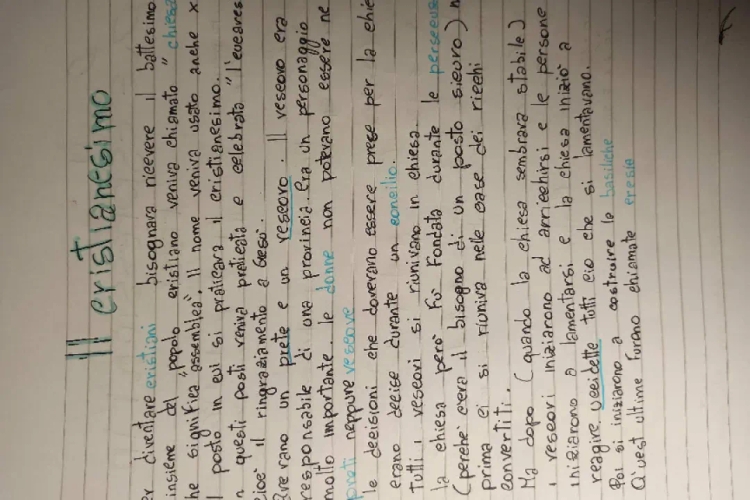 Il cristianesimo
er diventare cristiani bisognava ricevere il battesimo
insieme del popolo cristiano veniva chiamato "chiesa
he significa "assemblea". Il nome veniva usato anche x
l posto in cui si praticava il cristianesimo.
n questi posti veniva praticata e celebrata "l'eucares
cioè il ringraziamento a Gesù.
erano un prete e un vescovo. Il vescovo era
responsabile di una provincia. Era un personaggio
molto importante. le donne non potevano essere ne
preti neppure vescove
le decisioni che dovevano essere prese per la chie
erano decise durante un concilio.
Tutti i vescovi si riunivano in chiesa.
la chiesa però fu fondata durante le persecuz
(perchè c'era il bisogno di un posto sicuro) n
prima ci si riuniva nelle case dei ricchi
convertiti.
Ma dopo (quando la chiesa sembrava stabile)
i vescovi iniziarono ad arricchirsi e le persone
iniziarono a lamentarsi e la chiesa iniziò a
reagire, uccidette tutti cio che si lamentavano.
Poi si iniziarono a costruire le basiliche
Quest ultime furono chiamate eresie